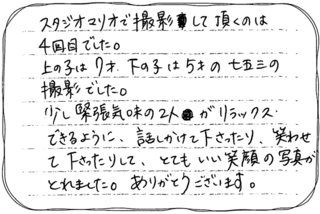 スタジオマリオで撮影して頂くのは
4回目でした。
上の子は7才、下の子は5才の七五三の
撮影でした。
少し緊張気味の2人がリラックス
できるように、話しかけて下さったり、笑わせ
て下さったりして、とてもいい笑顔の写真が
とれました。ありがとうございます。